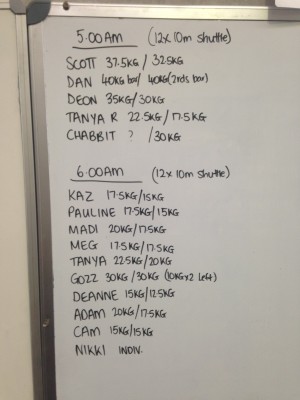 5:00AM (12x 10m shuttle)
SCOTT 37.5KG / 32.5KG
DAN 40KG bar/ 40KG (2rds bar)
DEON 35KG/30KG
TANYA R 22.5KG/17.5KG
CHABBIT ? /30KG
6:00AM (12x 10m shuttle)
KAZ 17.5KG/15KG
PAULINE 17.5KG/15KG
MADI 20KG/17.5KG
MEG 17.5KG/17.5KG
TANYA 22.5KG/20KG
GOZZ 30KG/30KG (10KGx2 Left)
DEANNE 15KG/12.5KG
ADAM 20KG/17.5KG
CAM 15KG/15KG
NIKKI INDIV.